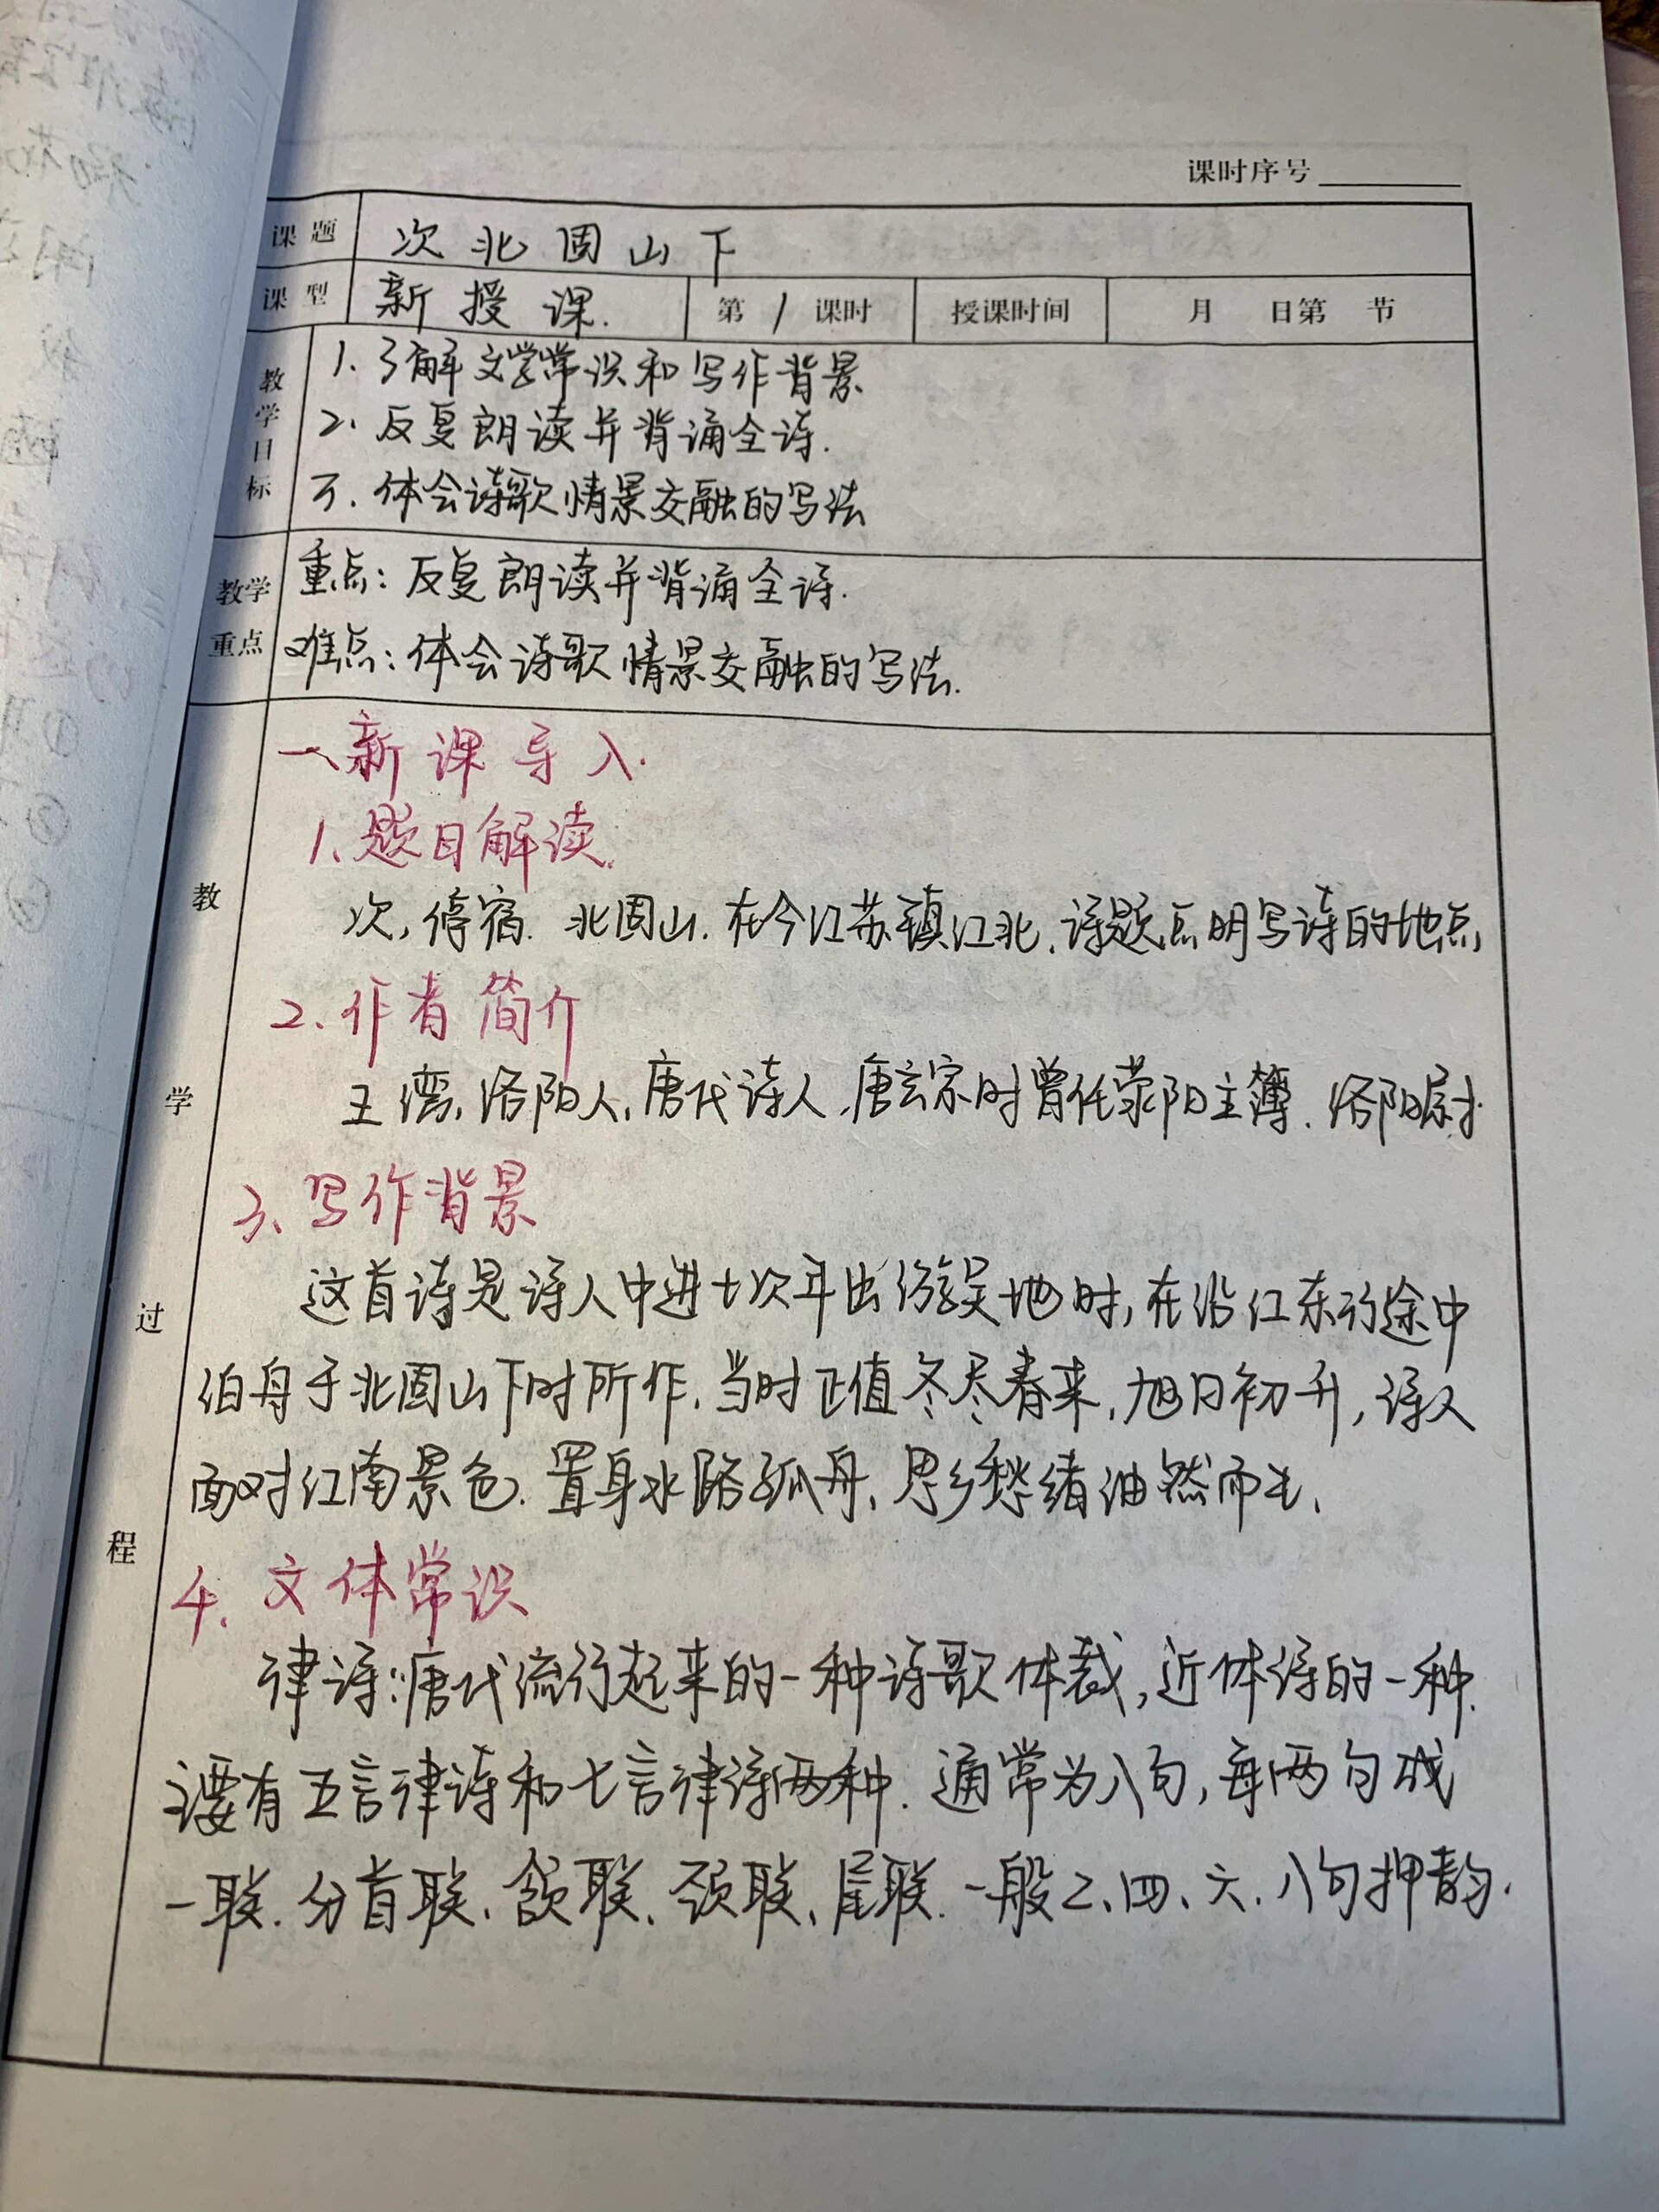 课时序号
课题 次北固山下
课型 新授课. 第 1 课时 授课时间 月 日第 节
教学目标
1.了解文学常识和写作背景
2.反复朗读并背诵全诗.
3.体会诗歌情景交融的写法
教学重点
重点:反复朗读并背诵全诗.
难点:体会诗歌情景交融的写法.
教学过程
一、新课导入.
1、题目解读.
次,停宿.北固山.在今江苏镇江北.诗题点明写诗的地点
2.作者简介
王湾,洛阳人,唐代诗人,唐玄宗时曾任荥阳主簿.洛阳尉.
3、写作背景
这首诗是诗人中进士次年出游吴地时,在沿江东行途中
泊舟于北固山下时所作.当时正值冬尽春来,旭日初升,诗人
面对江南景色.置身水路孤舟,思乡愁绪油然而生、
4.文体常识
律诗:唐代流行起来的一种诗歌体裁,近体诗的一种.
主要有五言律诗和七言律诗两种.通常为八句,每两句成
一联.分首联、颔联、颈联、尾联.一般2、四、六、八句押韵.